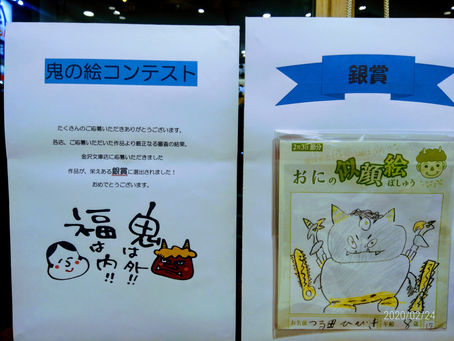 鬼の絵コンテスト
たくさんのご応募いただきありがとうございます。
各店、ご応募いただいた作品より厳正なる審査の結果、
金沢文庫店に応募いただきました
作品が、栄えある銀賞に選出されました!
おめでとうございます。
鬼は外!!
福は内!!
銀賞
2月3日 節分
おにの似顔絵
ぼしゅう
お名前
年齢
歳
2020/02/24